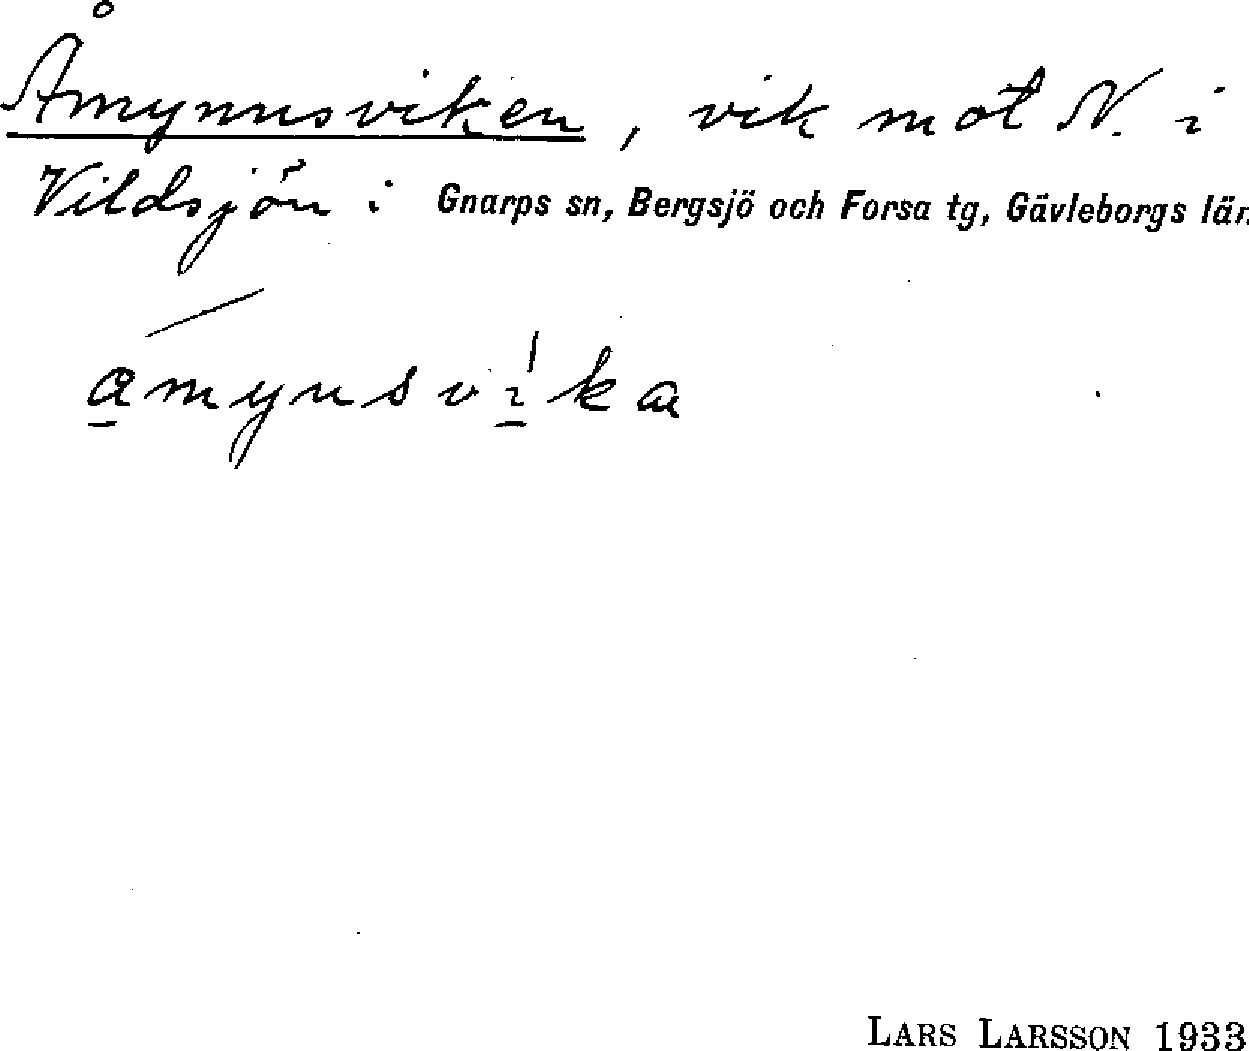 Åmynnsviken, vik mot N. i
Vildsjön i Gnarps sn, Bergsjö och Forsa tg, Gävleborgs län
åmynsvika
LARS LARSSON 1933